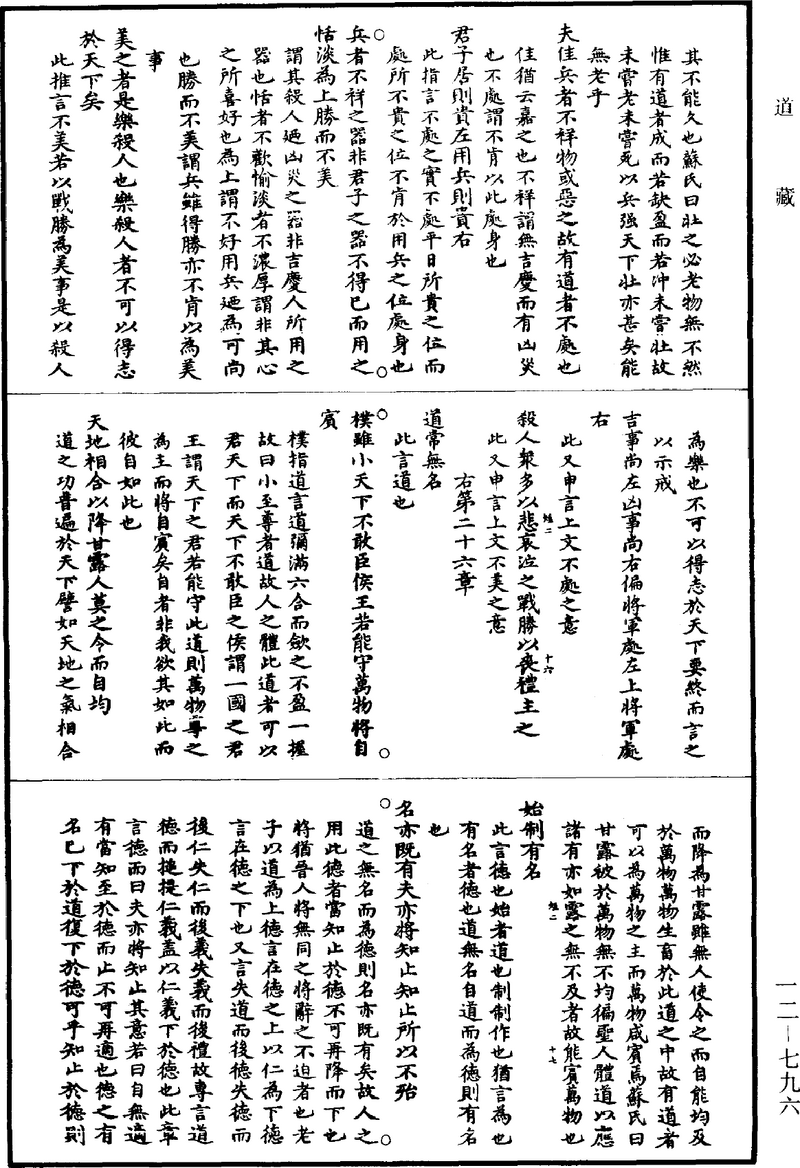 道藏
其不能久也蘇氏曰壯之必老物無不然
惟有道者成而若缺盈而若沖未嘗壯故
未嘗老未嘗死以兵强天下壯亦甚矣能
無老乎
夫佳兵者不祥物或惡之故有道者不處也
佳猶云嘉之也不祥謂無吉慶而有凶災
也不處謂不肯以此處身也
君子居則貴左用兵則貴右
此指言不處之實不處平日所貴之位而
處所不貴之位不肯於用兵之位處身也
○兵者不祥之器非君子之器不得已而用之○
恬淡為上勝而不美
謂其殺人廼凶災之器非吉慶人所用之
器也恬者不歡愉淡者不濃厚謂非其心
之所喜好也為上謂不好用兵廼為可尚
也勝而不美謂兵雖得勝亦不肯以為美
事
美之者是樂殺人也樂殺人者不可以得志
於天下矣
此推言不美若以戰勝為美事是以殺人
為樂也不可以得志於天下要終而言之
以示戒
吉事尚左凶事尚右偏將軍處左上將軍處
右
此又申言上文不處之意
殺人衆多以悲哀泣之戰勝以喪禮主之
此又申言上文不美之意
右第二十六章
道常無名
此言道也
○樸雖小天下不敢臣侯王若能守萬物將自○
賓
樸指道言道彌滿六合而斂之不盈一握
故曰小至尊者道故人之體此道者可以
君天下而天下不敢臣之侯謂一國之君
王謂天下之君若能守此道則萬物尊之
為主而將自賓矣自者非我欲其如此而
彼自如此也
天地相合以降甘露人莫之令而自均
道之功普遍於天下譬如天地之氣相合
而降為甘露雖無人使令之而自能均及
於萬物萬物生畜於此道之中故有道者
可以為萬物之主而萬物咸賓焉蘇氏曰
甘露被於萬物無不均徧聖人體道以應
諸有亦如露之無不及者故能賓萬物也
始制有名
此言德也始者道也制制作也猶言為也
有名者德也道無名自道而為德則有名
也
名亦既有夫亦將知止知止所以不殆
○道之無名而為德則名亦既有矣故人之○
用此德者當知止於德不可再降而下也
將猶晉人將無同之將辭之不迫者也老
子以道為上德言在德之上以仁為下德
言在德之下也又言失道而後德失德而
後仁失仁而後義失義而後禮故專言道
德而搥提仁義盖以仁義下於德也此章
言德而曰夫亦將知止其意若曰自無適
有當知至於德而止不可再適也德之有
名已下於道復下於德可乎知止於德則
十六
十七
一二—七九六